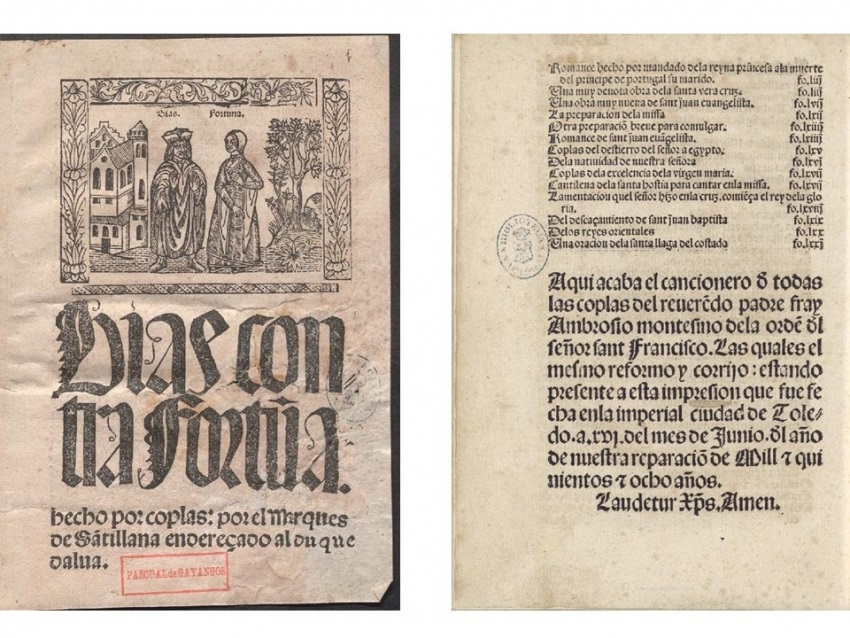 Bias. Fortuna.
Bias con
tra Fortũa.
hecho por coplas: por el Marques
de Sãtillana endereçado al duque
dalua.
PASCUAL de GAYANGOS
Romance hecho por mandado dela reyna princesa ala muerte
del principe de portugal su marido. fo.liiij
Una muy deuota obra dela santa vera cruz. fo.lvij
Una obra muy nueua de sant juan euangelista. fo.lvij
La preparacion dela missa fo.lxij
Otra preparaciõ breue para comulgar. fo.lxiiij
Romance de sant juan euãgelista. fo.lxiiij
Coplas del destierro del señor a egypto. fo.lxv
Dela natiuidad de nuestra señora fo.lxvj
Coplas dela excelencia dela virgen maria. fo.lxvij
Cantilena dela santa hostia para cantar enla missa. fo.lxvij
Lamentacion quel señor hizo enla cruz. comiẽça el rey dela glo
ria. fo.lxviij
Del descabeçamiento de sant juan baptista fo.lxix
Delos reyes orientales fo.lxx
Una oracion dela santa llaga del costado fo.lxxj
Aqui acaba el cancionero đ todas
las coplas del reuerẽdo padre fray
Ambrosio montesino dela ordẽ đl
señor sant Francisco. Las quales el
mesmo reformo y corrijo: estando
presente a esta impresion que fue fe
cha enla imperial ciudad de Tole-
do. a .xvj. del mes de Junio. đl año
de nuestra reparaciõ de Mill ⁊ qui
nientos ⁊ ocho años.
Laudetur Xp̃s. Amen.